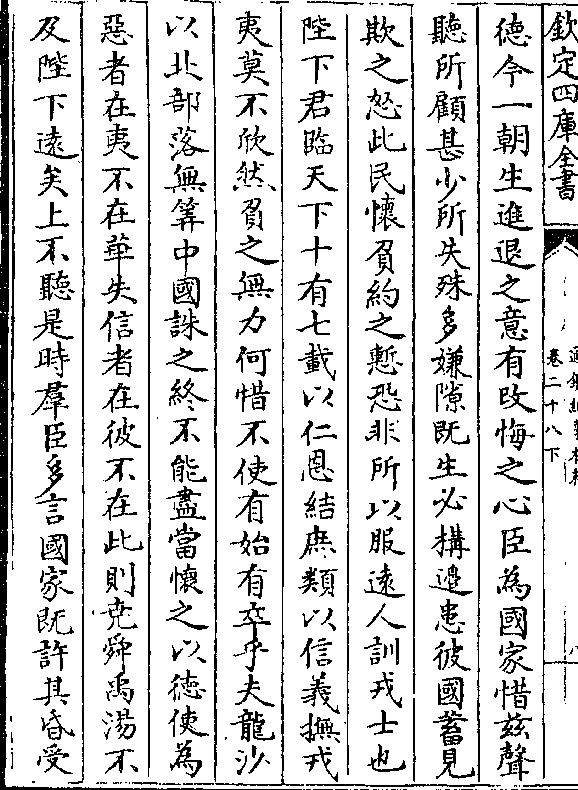 欽定四庫全書
卷二十八下
德今一朝生進退之意有改悔之心臣為國家惜兹聲
聽所顧甚少所失殊多嫌隙既生必搆邊患彼國蓄見
欺之怒此民懷負約之慙恐非所以服逺人訓戎士也
陛下君臨天下十有七載以仁恩結庶類以信義撫戎
夷莫不欣然負之無力何惜不使有始有卒乎夫龍沙
以北部落無筭中國誅之終不能盡當懷之以德使為
惡者在夷不在華失信者在彼不在此則堯舜禹湯不
及陛下逺矣上不聽是時羣臣多言國家既許其昏受